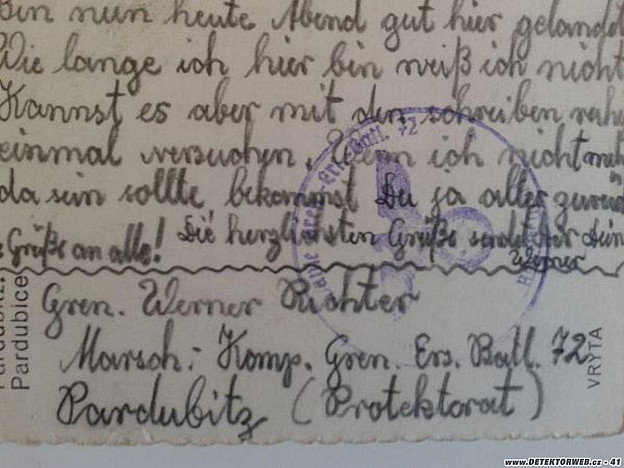 Bin nun heute Abend gut hier gelandet
Wie lange ich hier bin weiß ich nicht
Kannst es aber mit dem schreiben ruhig
einmal versuchen. Wenn ich nicht mehr
da sein sollte bekommst Du ja alles zurück
Grüße an alle! Die herzlichsten Grüße sendet Dir Dein
Werner
Gren. Werner Richter
Marsch.- Komp. Gren. Ers. Batl. 72
Pardubitz (Protektorat)
Pardubitz.
Pardubice
VRYTA
Ers. Batl. 72
www.DETEKTORWEB.cz - 41